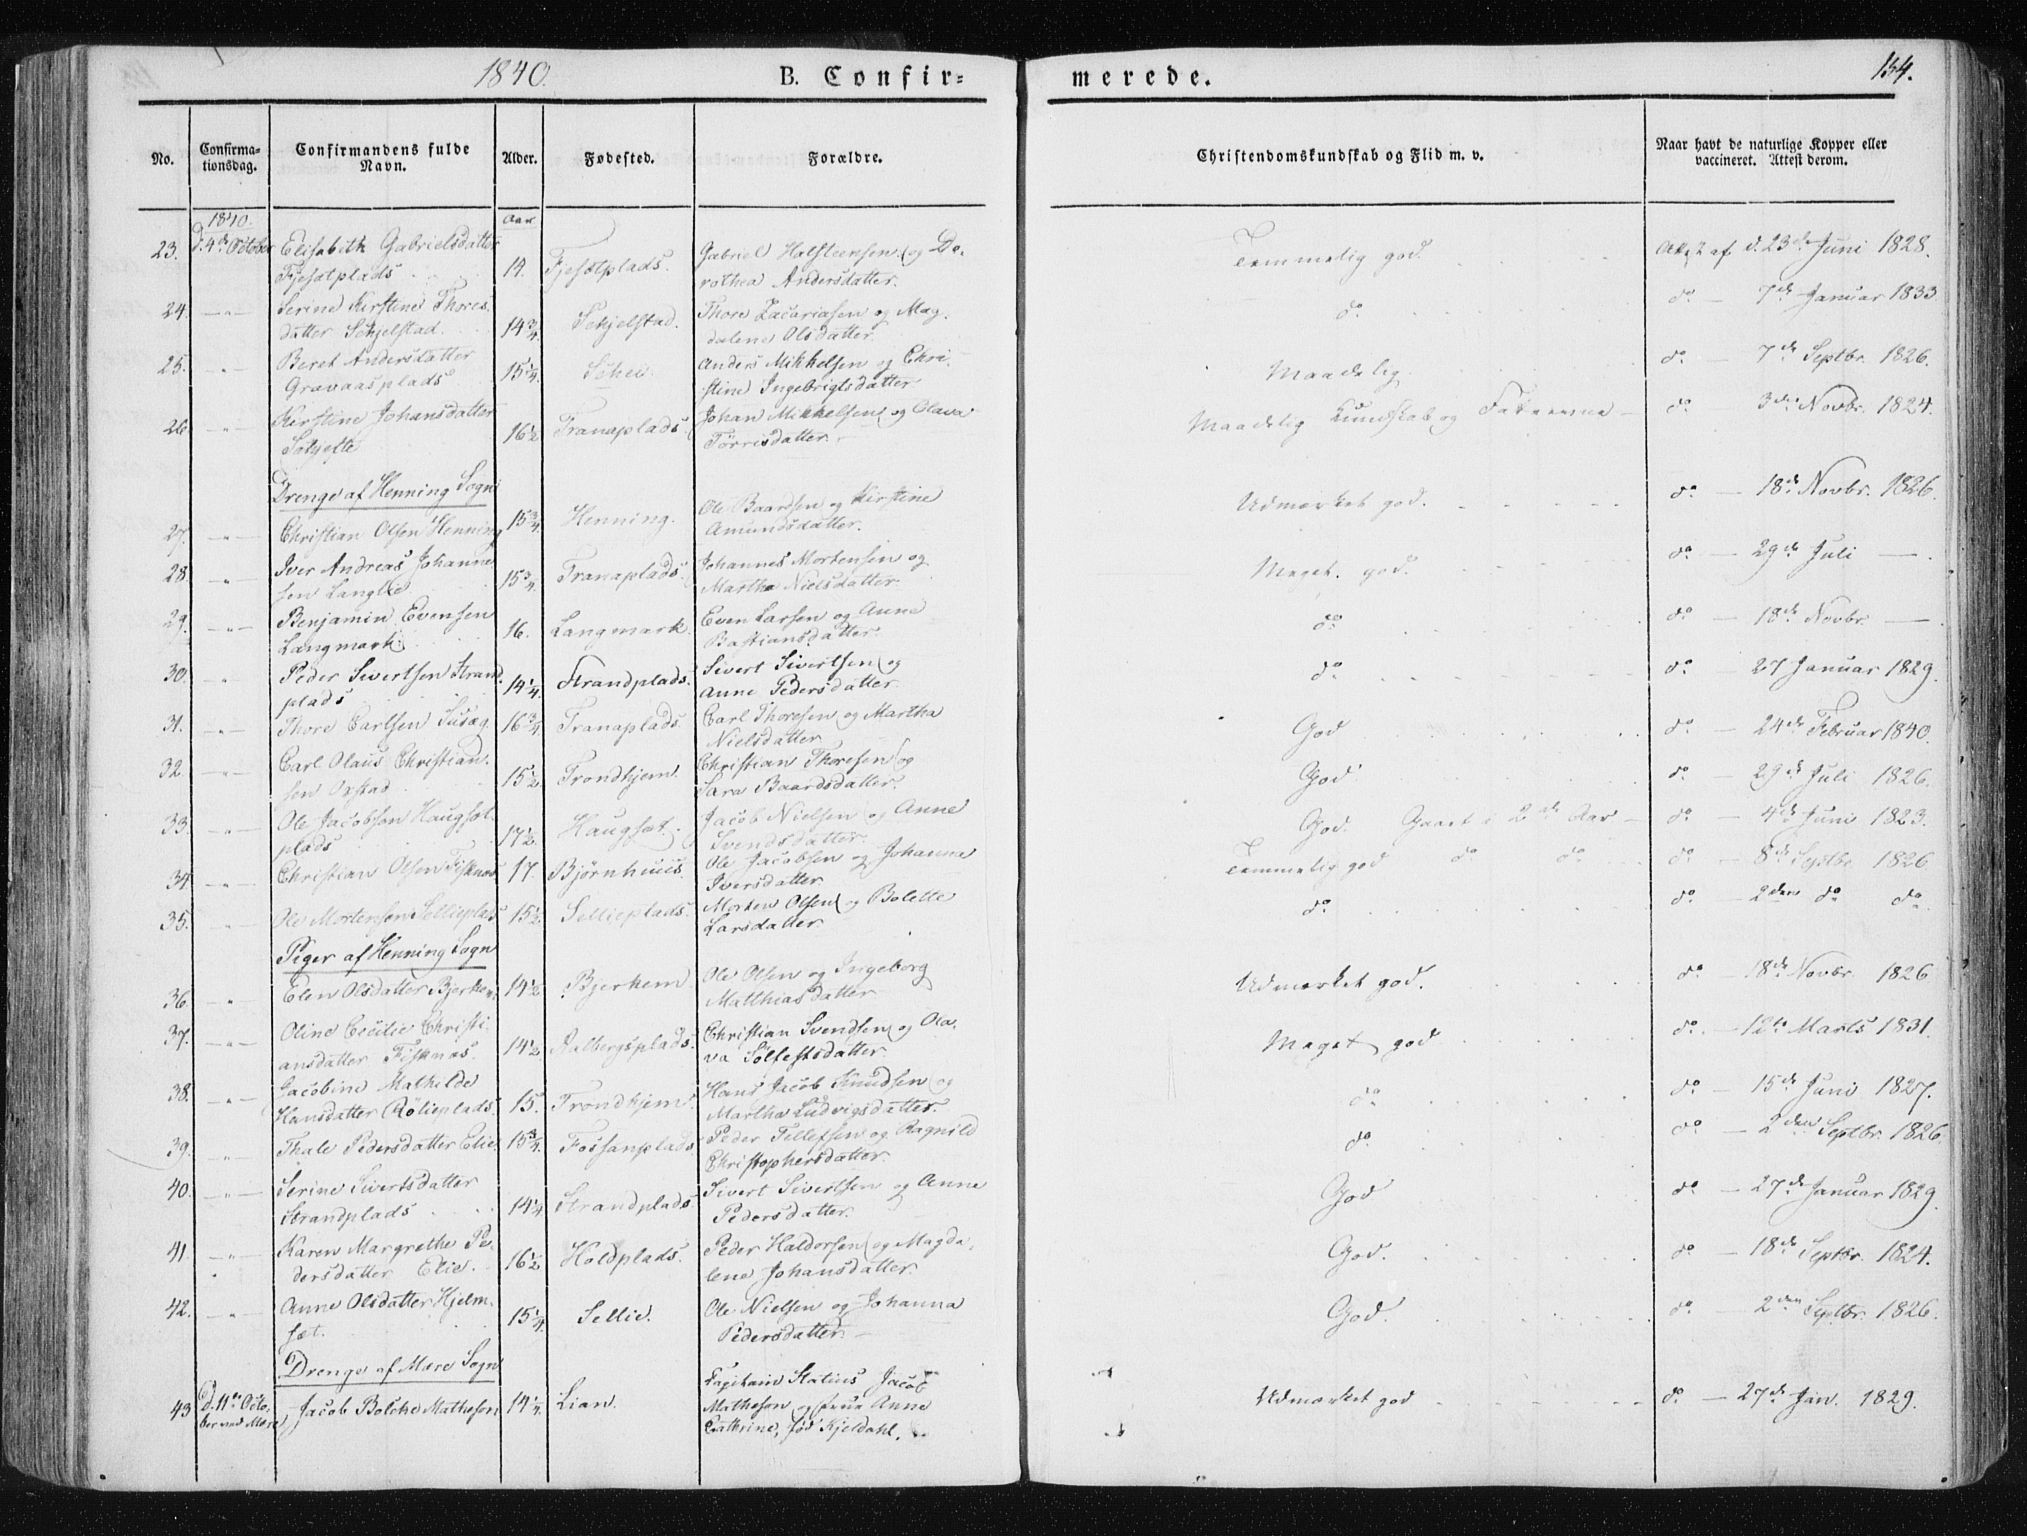 1840.
B. Confir=
merede.
154.
No.
Confirma-
tionsdag.
Confirmandens fulde
Navn.
Alder.
Fødested.
Forældre.
Christendomskundskab og Flid m. v.
Naar havt de naturlige Kopper eller
vaccineret. Attest derom.
1840.
Aar
23. d. 4de October Elisabeth Gabrielsdatter
Fjesætplads 14. Fjesætplads. Gabriel Halsteensen og Do-
rothea Andersdatter. Temmelig god Att af d. 23de Juni 1828.
24. —"— Serine Kirstine Thores-
datter Sckjelstad 14 3/4 Sckjelstad. Thore Zacariasen og Mag-
dalena Olsdatter do do — 7de Januar 1833
25. —"— Beret Andersdatter
Gravaasplads 15 1/4. Schei. Anders Mikkelsen og Chri-
stine Ingebrigtsdatter Maadelig do — 7de Septbr. 1826.
26. —"— Kirstine Johansdatter
16 1/2 Tranaplads. Johan Mikkelsen og Olava
Tørrisdatter. Maadelig Kundskab og — do — 3die Novbr. 1824.
Drenge af Henning Sogn
27. —"— Christian Olsen Henning 15 3/4. Henning. Ole Baardsen og Kirstine
Amundsdatter. Udmærket god. do — 18de Novbr. 1826.
28. —"— Iver Andreas Johanne-
sen Langlie 15 3/4 Tranaplads. Johannes Mortensen og
Martha Nielsdatter. Meget god. do — 29de Juli —
29. —"— Benjamin Evensen
Langmark. 16. Langmark. Even Larsen og Anne
Bastiansdatter. do do — 18de Novbr —
30. " Peder Sivertsen Strand-
plads 14 1/4. Strandplads. Sivert Sivertsen og
Anne Pedersdatter. do do — 27 Januar 1829.
31. —"— Thore Carlsen Susæg 16 3/4 Tranaplads. Carl Thoresen og Martha
Nielsdatter God do — 24de Februar 1840.
32. —"— Carl Olaus Christian-
sen Oxstad 15 1/2 Trondhjem. Christian Thoresen og
Sara Baardsdatter. God do — 29de Juli 1826.
33. —"— Ole Jacobsen Haugsæt-
plads 17 1/2 Haugsæt. Jacob Nielsen og Anne
Svendsdatter. God. Gaaet i 2det Aar — do — 4de Juni 1823.
34. —"— Christian Olsen Fisknæs 17. Bjørnhuus. Ole Jacobsen og Johanna
Iversdatter. Temmelig god do do do — 8de Septbr 1826
35. —"— Ole Mortensen Sellieplads 15 1/2 Sellieplads. Morten Olsen og Bolette
Larsdatter. do do — 2den do do
Piger af Henning Sogn
36. —"— Elen Olsdatter Bjerkem 14 1/2 Bjerkem. Ole Olsen og Ingeborg
Matthiasdatter Udmærket god. do — 18de Novbr 1826
37. —"— Oline Cecilie Christi-
ansdatter Fisknæs. 14 1/2 Aalbergsplads. Christian Svendsen og Ola-
va Sølfestsdatter. Meget god do — 12te Marts 1831.
38. —"— Jacobine Mathilde
Hansdatter Rølieplads. 15. Trondhjem. Hans Jacob Knudsen og
Martha Ludvigsdatter. do do — 15de Juni 1827.
39. " Thale Pedersdatter Elie. 15 3/4 Fossanplads Peder Tillefsen og Ragnild
Christophersdatter. do do — 2den Septbr. 1826.
40. —"— Serine Sivertsdatter
Strandplads 14 1/4 Strandplads. Sivert Sivertsen og Anne
Pedersdatter. God do — 27de Januar 1829
41. —"— Karen Margrethe Pe-
dersdatter Elie. 16 1/2 Holdplads. Peder Haldorsen og Magda-
lene Johansdatter. God. do — 18de Septbr. 1824.
42. —"— Anne Olsdatter Hjelm-
sæt. 15 1/4 Sellie. Ole Nielsen og Johanna
Pedersdatter. — God. do — 2den Septbr. 1826.
Drenge af Mære Sogn
43 D. 11te Octo-
ber ved Mære Jacob Bolcke Mathesen 14 1/4. Lian. Capitain Statius Jacob
Mathesen og Frue Anne
Cathrine, fød Kjeldahl. Udmærket god do — 27de Jan. 1829.